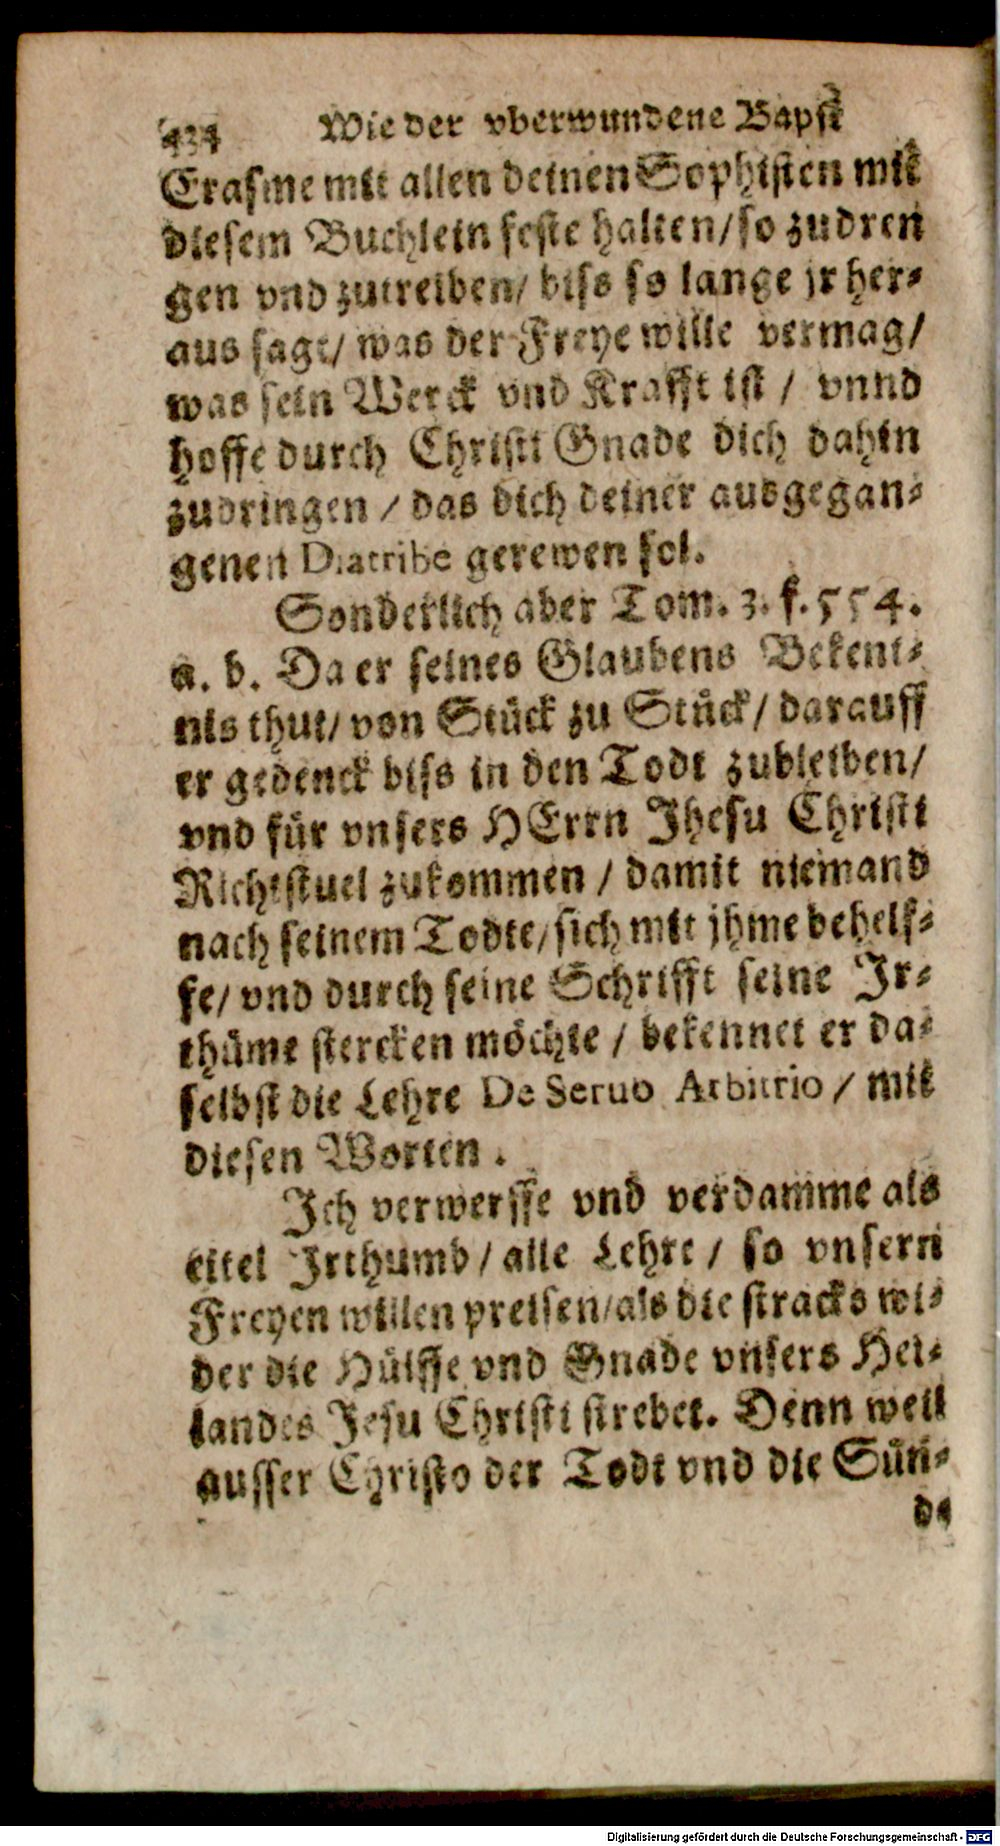 434 Wie der vberwundene Bapst
Erasme mit allen deinen Sophisten mit
diesem Buchlein feste halten/ so zudren
gen vnd zutreiben/ biss so lange jr her-
aus sagt/ was der Freye wille vermag/
was sein Werck vnd Krafft ist / vnnd
hoffe durch Christi Gnade dich dahin
zudringen / das dich deiner ausgegan-
genen Diatribe gerewen sol.
Sonderlich aber Tom. 3. f. 554.
a. b. Da er seines Glaubens Bekent-
nis thut/ von Stück zu Stück/ darauff
er gedenck biss in den Todt zubleiben/
vnd für vnsers HErrn Jhesu Christi
Richtstuel zukommen / damit niemand
nach seinem Todte/ sich mit jhme behelf-
fe/ vnd durch seine Schrifft seine Jr-
thüme stercken möchte / bekennet er da-
selbst die Lehre De Seruo Arbitrio / mit
diesen Worten.
Ich verwerffe vnd verdamme als
eitel Jrthumb / alle Lehre / so vnsern
Freyen willen preisen/ als die stracks wi-
der die Hülffe vnd Gnade vnsers Hei-
landes Jesu Christi strebet. Denn weil
ausser Christo der Todt vnd die Sün-
de
Digitalisierung gefördert durch die Deutsche Forschungsgemeinschaft - DFG